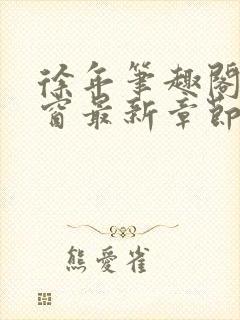 徐年筆趣閣
窗最新章節
熊愛雀